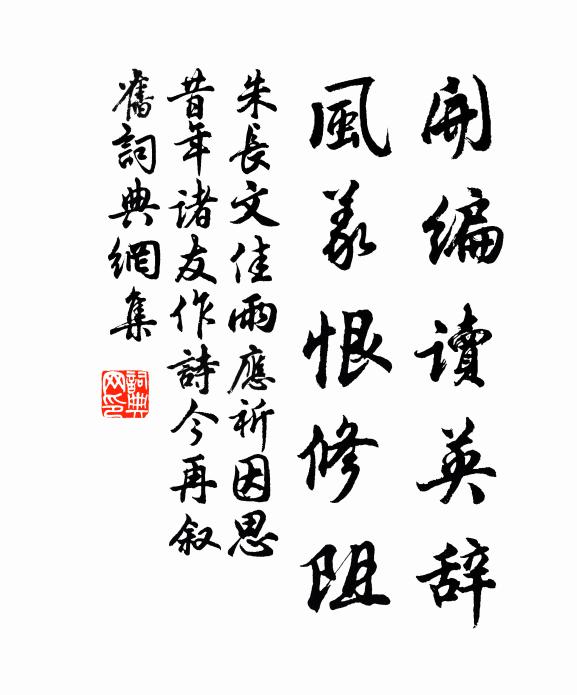 開編讀英辞
風義恨修阻
朱長文佳雨應祈因思
昔年諸友作詩今再叙
舊詞典網集
詞典網印